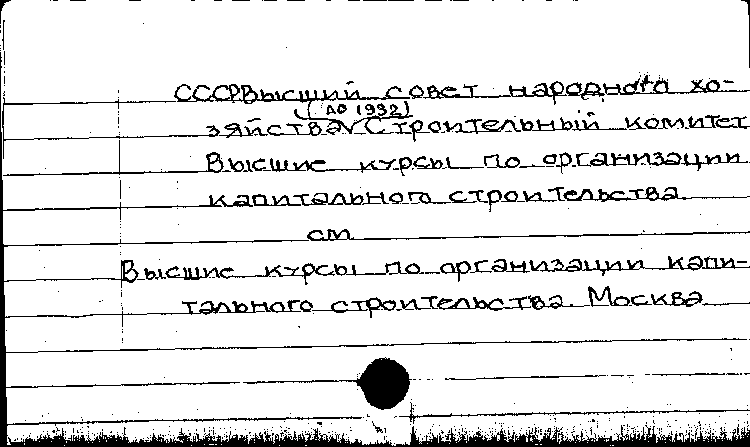 СССР Высший совет народного хо-
(до 1932)
зяйства Строительный комитет
Высшие курсы по организации
капитального строительства.
см
Высшие курсы по организации капи-
тального строительства. Москва